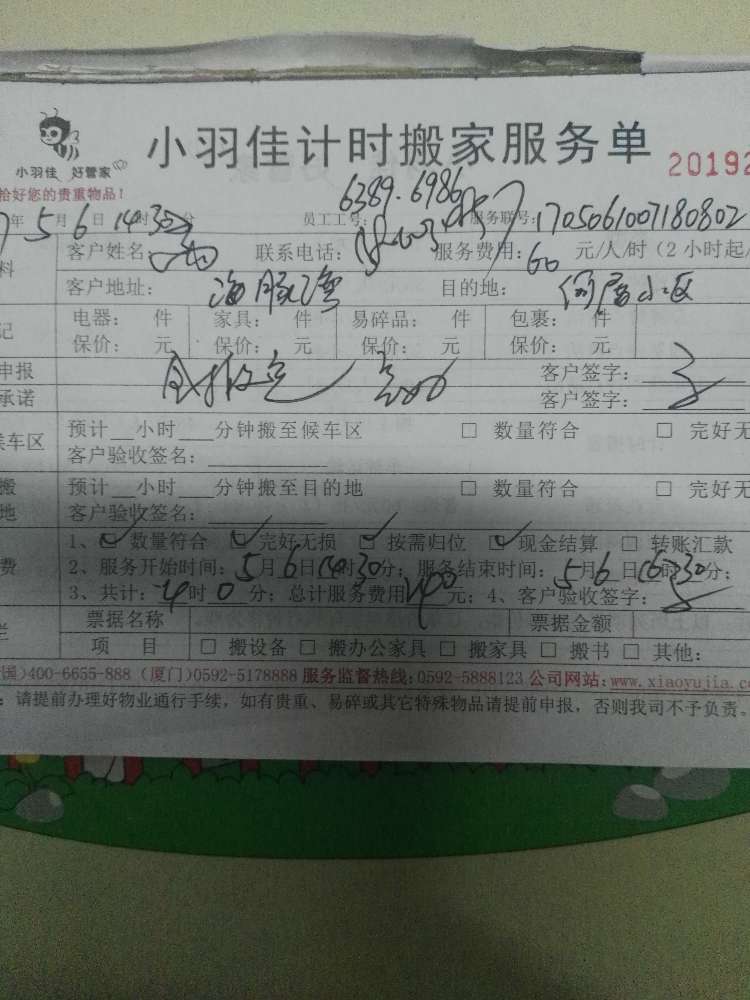 小羽佳 好管家
小羽佳计时搬家服务单
20192
恰好您的贵重物品!
6389.6986
年5月6日14时30分 员工工号: 服务联号:1705061007180802
料 客户姓名: 联系电话: 服务费用:60元/人/时(2小时起/
客户地址:海豚湾 目的地: 小区
记 电器: 件 家具: 件 易碎品: 件 包裹: 件
保价: 元 保价: 元 保价: 元 保价: 元
申报 客户签字:
承诺 客户签字:
候车区 预计__小时___分钟搬至候车区 □ 数量符合 □ 完好无
客户验收签名:
搬 预计__小时___分钟搬至目的地 □ 数量符合 □ 完好无
地 客户验收签名:
1、☑ 数量符合 ☑ 完好无损 ☑ 按需归位 ☑ 现金结算 □ 转账汇款
费 2、服务开始时间:5月6日14时30分;服务结束时间:5月6日16时30分;
3、共计:4时0分;总计服务费用240元;4、客户验收签字:
栏 票据名称 票据金额
项 目 □ 搬设备 □ 搬办公家具 □ 搬家具 □ 搬书 □ 其他:
国)400-6655-888 (厦门)0592-5178888 服务监督热线:0592-5888123 公司网站:www.xiaoyujia.co
:请提前办理好物业通行手续,如有贵重、易碎或其它特殊物品请提前申报,否则我司不予负责。